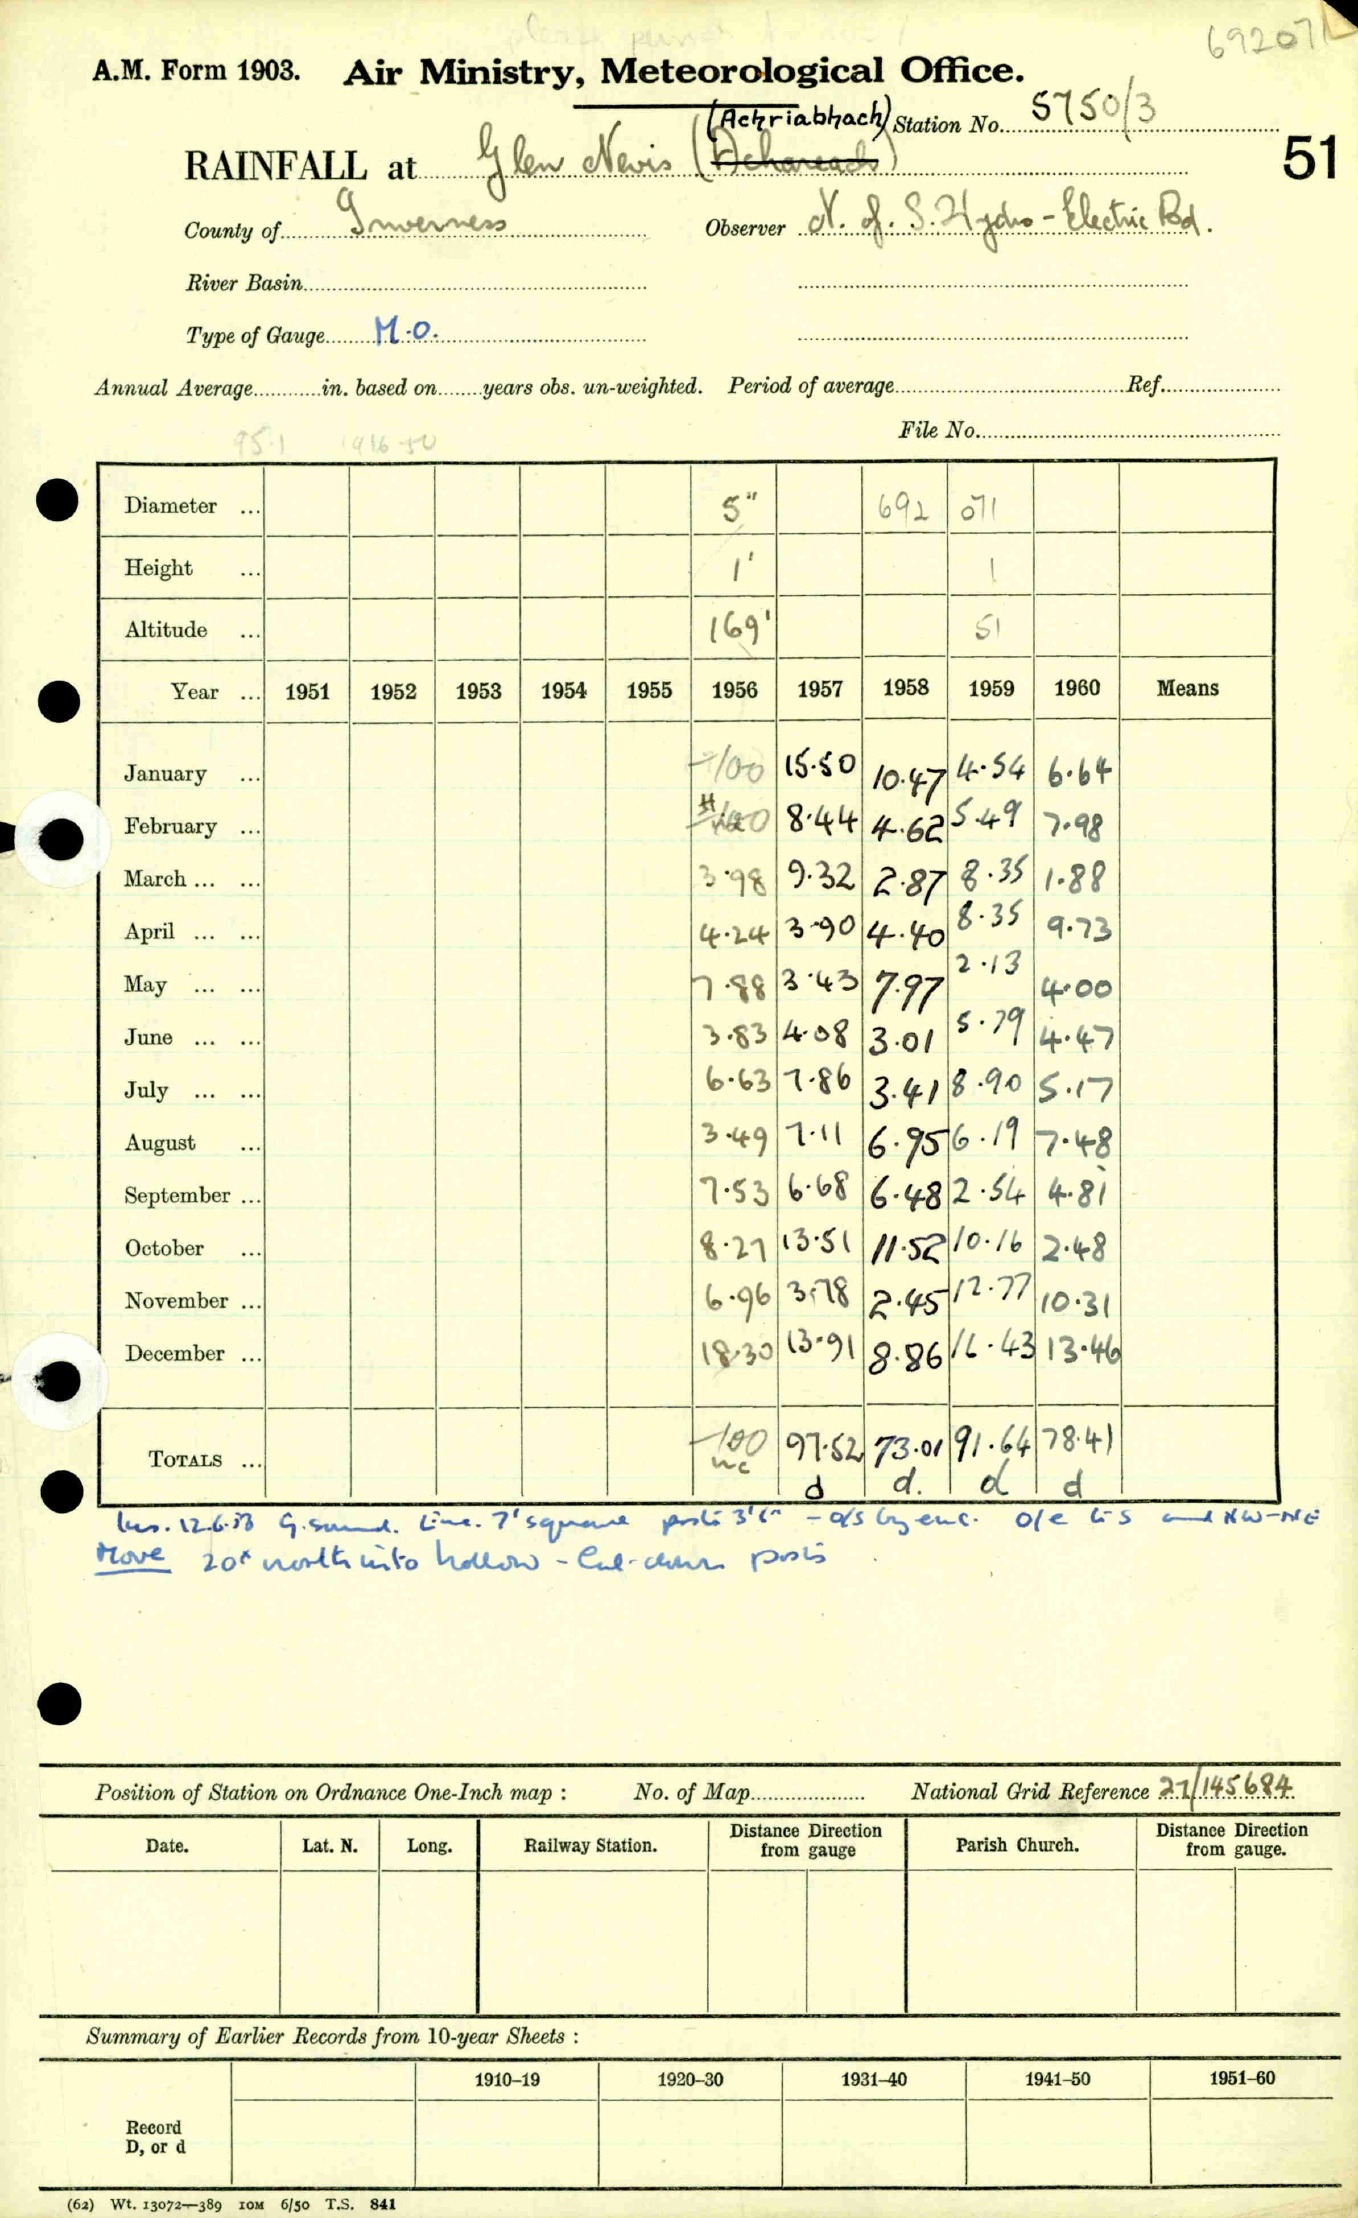 692071
A.M. Form 1903. Air Ministry, Meteorological Office.
(Achriabhach) Station No. 5750/3
RAINFALL at Glen Nevis (Achareach)
51
County of Inverness Observer N. of. S. Hydro-Electric Bd.
River Basin
Type of Gauge M.O.
Annual Average in. based on years obs. un-weighted. Period of average Ref.
File No.
95.1 1916-50
Diameter ... 5" 692 071
Height ... 1' 1
Altitude ... 169' 51
Year ... 1951 1952 1953 1954 1955 1956 1957 1958 1959 1960 Means
January ... -/00 15.50 10.47 4.54 6.64
February ... 8.44 4.62 5.49 7.98
March ... ... 3.98 9.32 2.87 8.35 1.88
April ... ... 4.24 3.90 4.40 8.35 9.73
May ... ... 7.88 3.43 7.97 2.13 4.00
June ... ... 3.83 4.08 3.01 5.79 4.47
July ... ... 6.63 7.86 3.41 8.90 5.17
August ... 3.49 7.11 6.95 6.19 7.48
September ... 7.53 6.68 6.48 2.54 4.81
October ... 8.27 13.51 11.52 10.16 2.48
November ... 6.96 3.78 2.45 12.77 10.31
December ... 18.30 13.91 8.86 16.43 13.46
TOTALS ... -100 97.52 73.01 91.64 78.41
d d. d d
12.6.53 G. sound. 7' square posts 3'6" - o/s by enc. o/e and NW-NE
Move 20x north into hollow - Cut-down posts
Position of Station on Ordnance One-Inch map : No. of Map National Grid Reference 27/145684
Date. Lat. N. Long. Railway Station. Distance from gauge Direction Parish Church. Distance from Direction gauge.
Summary of Earlier Records from 10-year Sheets :
1910–19 1920–30 1931–40 1941–50 1951–60
Record
D, or d
(62) Wt. 13072—389 10M 6/50 T.S. 841